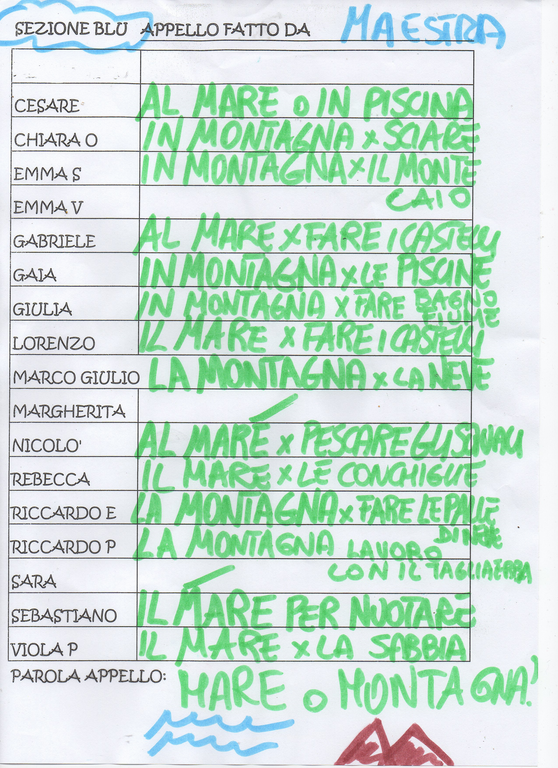 SEZIONE BLU APPELLO FATTO DA MAESTRA
CESARE AL MARE O IN PISCINA
CHIARA O IN MONTAGNA X SCIARE
EMMA S IN MONTAGNA X IL MONTE
EMMA V CAIO
GABRIELE AL MARE X FARE I CASTELLI
GAIA IN MONTAGNA X LE PISCINE
GIULIA IN MONTAGNA X FARE BAGNO
FIUME
LORENZO IL MARE X FARE I CASTELLI
MARCO GIULIO LA MONTAGNA X LA NEVE
MARGHERITA
NICOLO' AL MARE X PESCARE GLI SQUALI
REBECCA IL MARE X LE CONCHIGLIE
RICCARDO E LA MONTAGNA X FARE LE PALLE
DI NEVE
RICCARDO P LA MONTAGNA LAVORO
CON IL TAGLIAERBA
SARA
SEBASTIANO IL MARE PER NUOTARE
VIOLA P IL MARE X LA SABBIA
PAROLA APPELLO: MARE O MONTAGNA?